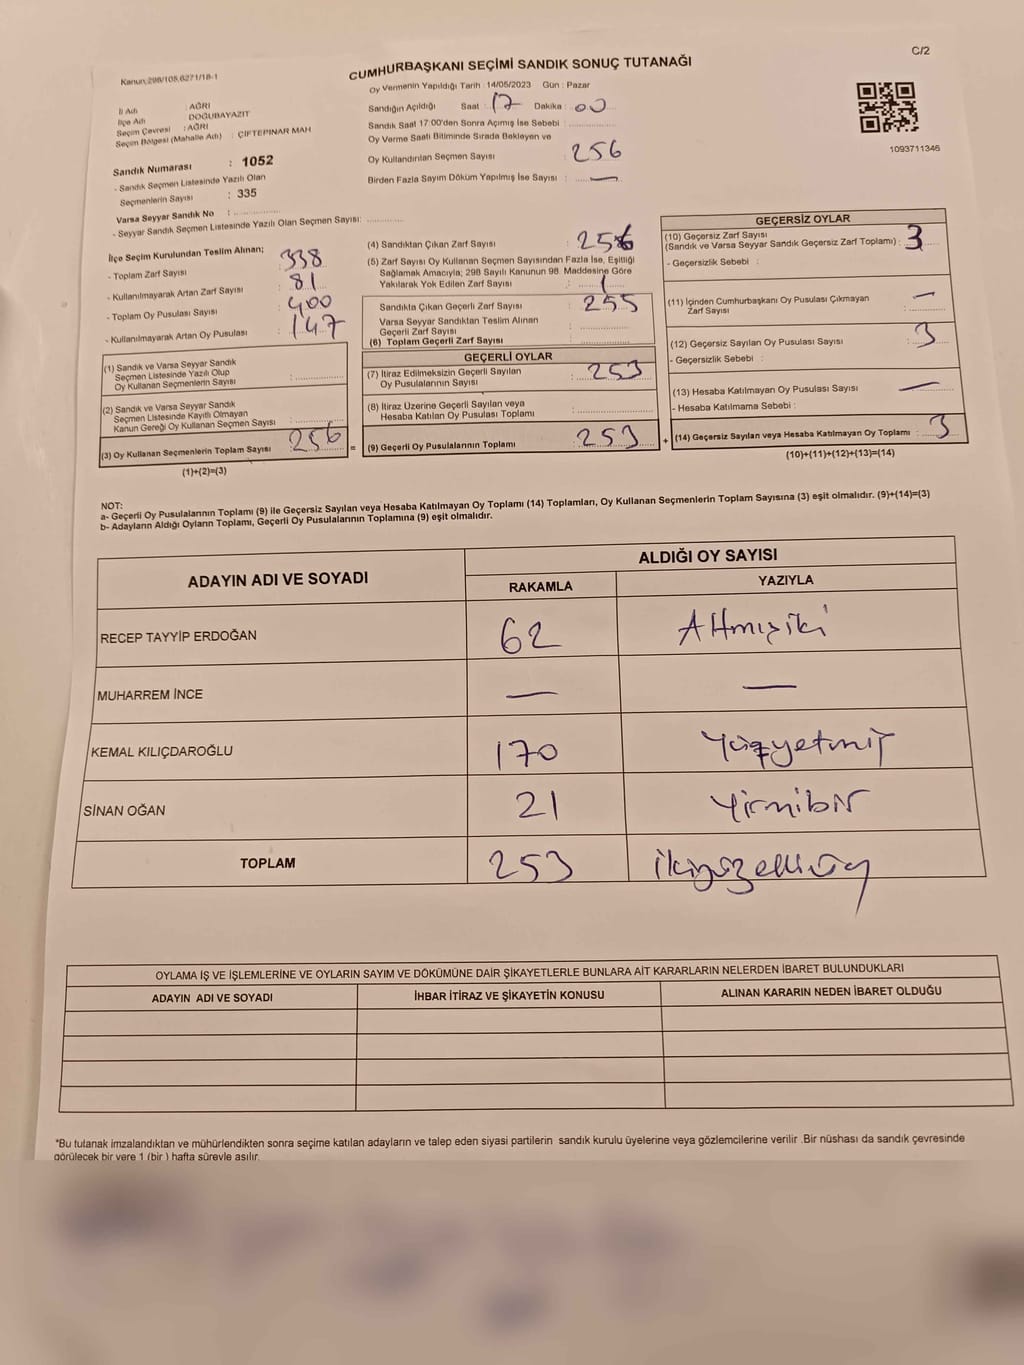 C/2
Kanun,298/108,6271/18-1
CUMHURBAŞKANI SEÇİMİ SANDIK SONUÇ TUTANAĞI
Oy Vermenin Yapıldığı Tarih : 14/05/2023 Gün : Pazar
İl Adı : AĞRI
İlçe Adı : DOĞUBAYAZIT
Seçim Çevresi : AĞRI
Seçim Bölgesi (Mahalle Adı) : ÇİFTEPINAR MAH
Sandık Numarası : 1052
- Sandık Seçmen Listesinde Yazılı Olan
Seçmenlerin Sayısı : 335
Varsa Seyyar Sandık No :
- Seyyar Sandık Seçmen Listesinde Yazılı Olan Seçmen Sayısı:
Sandığın Açıldığı Saat : 17 Dakika : 00
Sandık Saat 17:00'den Sonra Açımış İse Sebebi :
Oy Verme Saati Bitiminde Sırada Bekleyen ve
Oy Kullandırılan Seçmen Sayısı : 256
Birden Fazla Sayım Döküm Yapılmış İse Sayısı : —
1093711346
İlçe Seçim Kurulundan Teslim Alınan;
- Toplam Zarf Sayısı : 338
- Kullanılmayarak Artan Zarf Sayısı : 81
- Toplam Oy Pusulası Sayısı : 400
- Kullanılmayarak Artan Oy Pusulası : 147
(1) Sandık ve Varsa Seyyar Sandık
Seçmen Listesinde Yazılı Olup
Oy Kullanan Seçmenlerin Sayısı :
(2) Sandık ve Varsa Seyyar Sandık
Seçmen Listesinde Kayıtlı Olmayan
Kanun Gereği Oy Kullanan Seçmen Sayısı :
(3) Oy Kullanan Seçmenlerin Toplam Sayısı : 256
(1)+(2)=(3)
(4) Sandıktan Çıkan Zarf Sayısı : 256
(5) Zarf Sayısı Oy Kullanan Seçmen Sayısından Fazla İse, Eşitliği
Sağlamak Amacıyla; 298 Sayılı Kanunun 98. Maddesine Göre
Yakılarak Yok Edilen Zarf Sayısı : 1
Sandıkta Çıkan Geçerli Zarf Sayısı : 255
Varsa Seyyar Sandıktan Teslim Alınan
Geçerli Zarf Sayısı :
(6) Toplam Geçerli Zarf Sayısı :
GEÇERLİ OYLAR
(7) İtiraz Edilmeksizin Geçerli Sayılan
Oy Pusulalarının Sayısı : 253
(8) İtiraz Üzerine Geçerli Sayılan veya
Hesaba Katılan Oy Pusulası Toplamı :
= (9) Geçerli Oy Pusulalarının Toplamı : 253
GEÇERSİZ OYLAR
(10) Geçersiz Zarf Sayısı
(Sandık ve Varsa Seyyar Sandık Geçersiz Zarf Toplamı) : 3
- Geçersizlik Sebebi :
(11) İçinden Cumhurbaşkanı Oy Pusulası Çıkmayan
Zarf Sayısı : —
(12) Geçersiz Sayılan Oy Pusulası Sayısı : 3
- Geçersizlik Sebebi :
(13) Hesaba Katılmayan Oy Pusulası Sayısı : —
- Hesaba Katılmama Sebebi :
+ (14) Geçersiz Sayılan veya Hesaba Katılmayan Oy Toplamı : 3
(10)+(11)+(12)+(13)=(14)
NOT:
a- Geçerli Oy Pusulalarının Toplamı (9) ile Geçersiz Sayılan veya Hesaba Katılmayan Oy Toplamı (14) Toplamları, Oy Kullanan Seçmenlerin Toplam Sayısına (3) eşit olmalıdır. (9)+(14)=(3)
b- Adayların Aldığı Oyların Toplamı, Geçerli Oy Pusulalarının Toplamına (9) eşit olmalıdır.
ADAYIN ADI VE SOYADI
ALDIĞI OY SAYISI
RAKAMLA YAZIYLA
RECEP TAYYİP ERDOĞAN 62 Altmışiki
MUHARREM İNCE — —
KEMAL KILIÇDAROĞLU 170 Yüzyetmiş
SİNAN OĞAN 21 Yirmibir
TOPLAM 253 ikiyüzelliüç
OYLAMA İŞ VE İŞLEMLERİNE VE OYLARIN SAYIM VE DÖKÜMÜNE DAİR ŞİKAYETLERLE BUNLARA AİT KARARLARIN NELERDEN İBARET BULUNDUKLARI
ADAYIN ADI VE SOYADI İHBAR İTİRAZ VE ŞİKAYETİN KONUSU ALINAN KARARIN NEDEN İBARET OLDUĞU
*Bu tutanak imzalandıktan ve mühürlendikten sonra seçime katılan adayların ve talep eden siyasi partilerin sandık kurulu üyelerine veya gözlemcilerine verilir .Bir nüshası da sandık çevresinde
görülecek bir yere 1 (bir ) hafta süreyle asılır.